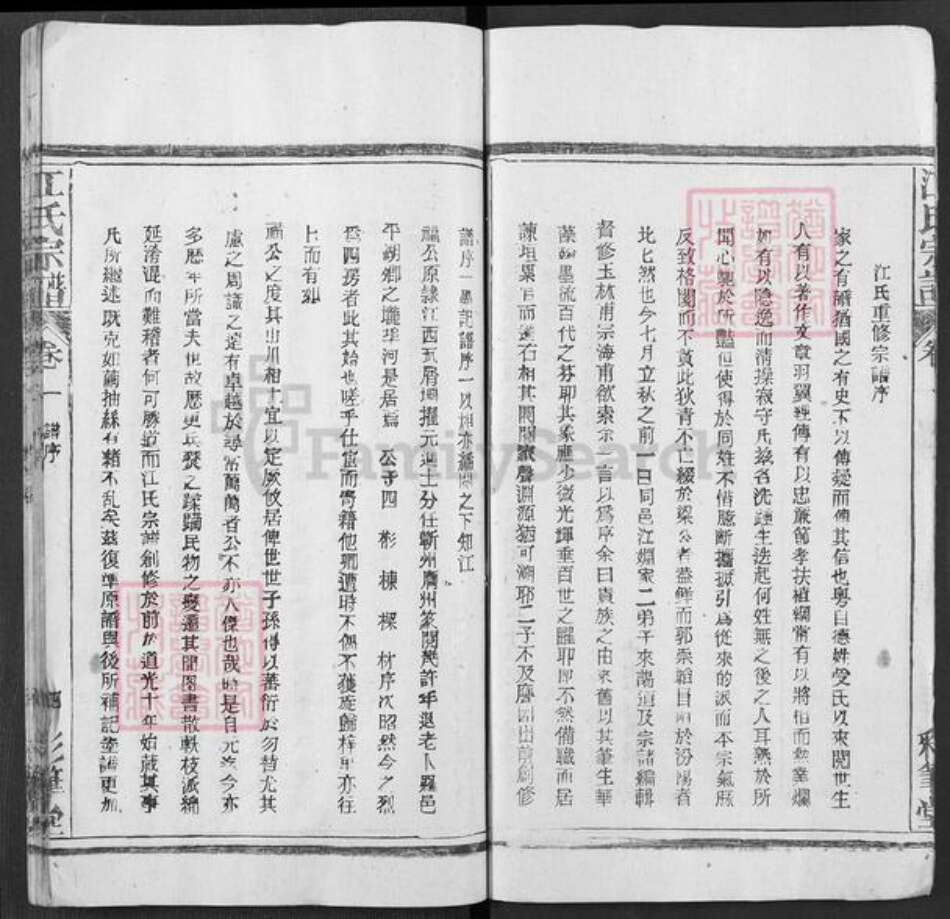 江氏重修宗譜序
家之有譜猶國之有史不以傳疑而傳其信也粵自德姓受氏以來閱世生
人有以著作文章羽翼經傳有以忠廉節孝扶植綱常有以將相而勲業爛
如有以隐逸而清操寂守凡茲各流踵生迭起何姓無之後之人耳熱於所
聞心艷於所豔但使得於同姓不惜臆斷攟摭引爲從來的派而本宗氣脈
反致格閡而不貫此狄青不亡綴於梁公者蓋鮮而郭崇韜目而於汾陽者
比比然也今七月立秋之前一日同邑江淵家二弟子來蕩道及宗諸編輯
督修玉林甫宗海甫欲索余一言以爲序余曰貴族之由來舊以其筆生華
藻如墨流百代之芬耶其象應少微光輝垂百世之耀耶即不然備職而居
諫垣累官而遂石相其閥閱家聲淵源猶可溯耶二子不及詹因出前創修
譜序一墨記譜序一以
之下知江
福公原隸江西瓦屑壩擢元進士分任蘄州黃州篆閱幾許年退老卜羅邑
平湖鄉之壠旱河是居焉 公子四 彬 棟 樑 材序次昭然今之烈
爲四房者此其始也嗟乎仕宦而寄籍他鄉遭時不偶不獲旋歸梓里亦往
上而有矧
福公之度其山川相土宜以定厥攸居俾世世子孫得以蕃衍於勿替尤其
慮之周議之達有卓越於尋常萬萬者公不亦人傑也哉時是自元迄今亦
多歷年所當夫世故歷更兵燹之蹂躪民物之變遷其間圖書散軼枝派綿
延淆混而難稽者何可勝道而江氏宗譜創修於前於道光十年始蕆其事
凡所繼述既克如繭抽絲有緒不亂矣茲復準原譜與後所補記塗譜更加
江氏宗譜 卷一 譜序
江氏宗譜 卷一
四 彩筆堂
彩筆堂
FamilySearch